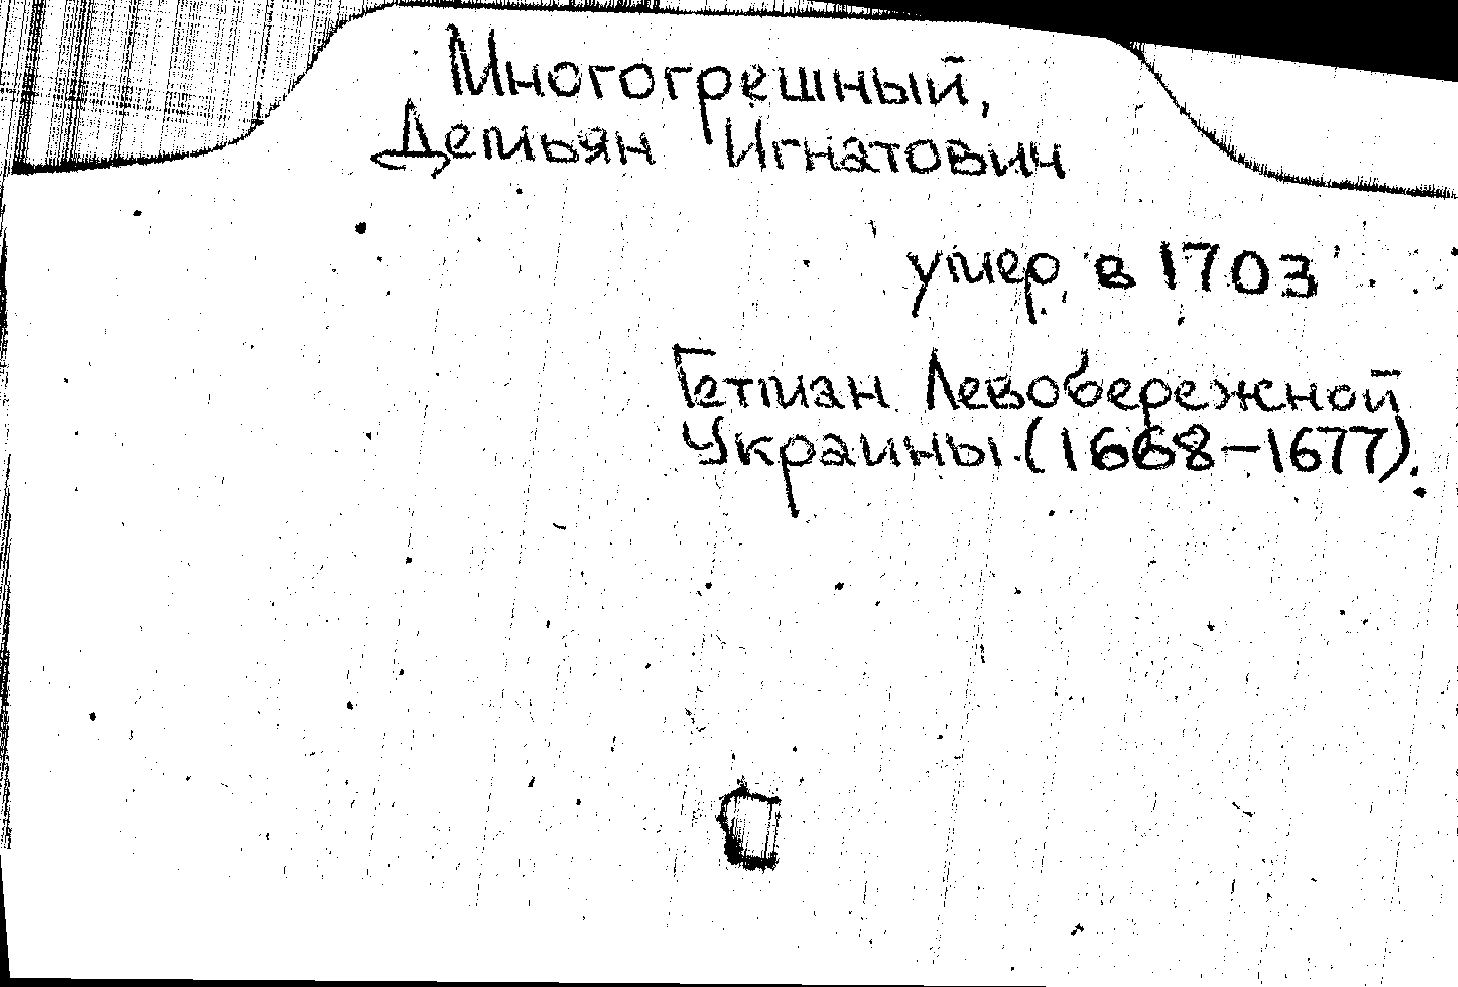 Многогрешный,
Демьян Игнатович
умер в 1703
Гетман Левобережной
Украины (1668-1677).